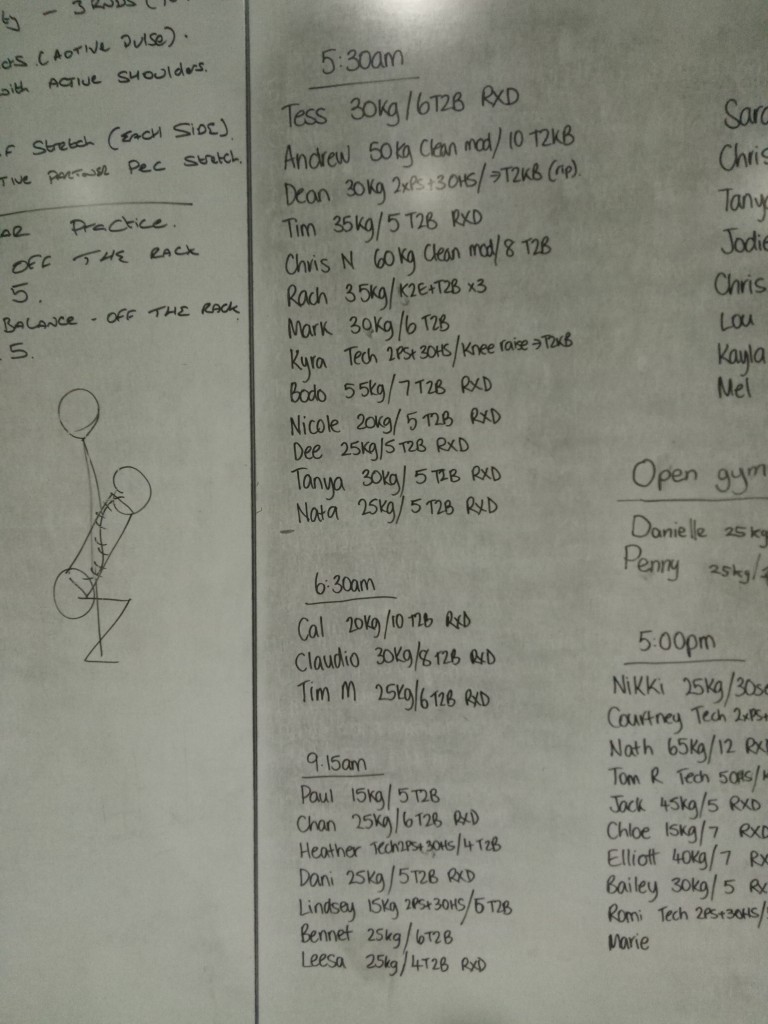 by - 3 RNDS
(ACTIVE PULSE).
with ACTIVE SHOULDERS.
STRETCH (EACH SIDE).
PARTNER PEC STRETCH.
PRACTICE.
OFF THE RACK
5.
BALANCE - OFF THE RACK
5.
5:30am
Tess 30kg/6T2B RXD
Andrew 50kg Clean mod/10 T2KB
Dean 30kg 2xPS+3OHS/→T2KB (rip).
Tim 35kg/5 T2B RXD
Chris N 60kg Clean mod/8 T2B
Rach 35kg/K2E+T2B x3
Mark 30kg/6 T2B
Kyra Tech 2PS+3OHS/Knee raise→T2KB
Bodo 55kg/7T2B RXD
Nicole 20kg/5T2B RXD
Dee 25kg/5T2B RXD
Tanya 30kg/5T2B RXD
Nata 25kg/5T2B RXD
6:30am
Cal 20kg/10T2B RXD
Claudio 30kg/8T2B RXD
Tim M 25kg/6T2B RXD
9.15am
Paul 15kg/5T2B
Chan 25kg/6T2B RXD
Heather Tech 2PS+3OHS/4T2B
Dani 25kg/5T2B RXD
Lindsey 15kg 2PS+3OHS/5T2B
Bennet 25kg/6T2B
Leesa 25kg/4T2B RXD
Chris
Tanya
Jodie
Chris
Lou
Kayla
Mel
Open gym
Danielle 25kg
Penny 25kg/
5:00pm
Nikki 25kg/30
Courtney Tech 2xPS+
Nath 65kg/12 RXD
Tom R Tech 5OHS/
Jack 45kg/5 RXD
Chloe 15kg/7 RXD
Elliott 40kg/7 RX
Bailey 30kg/5 RX
Romi Tech 2PS+3OHS/
Marie